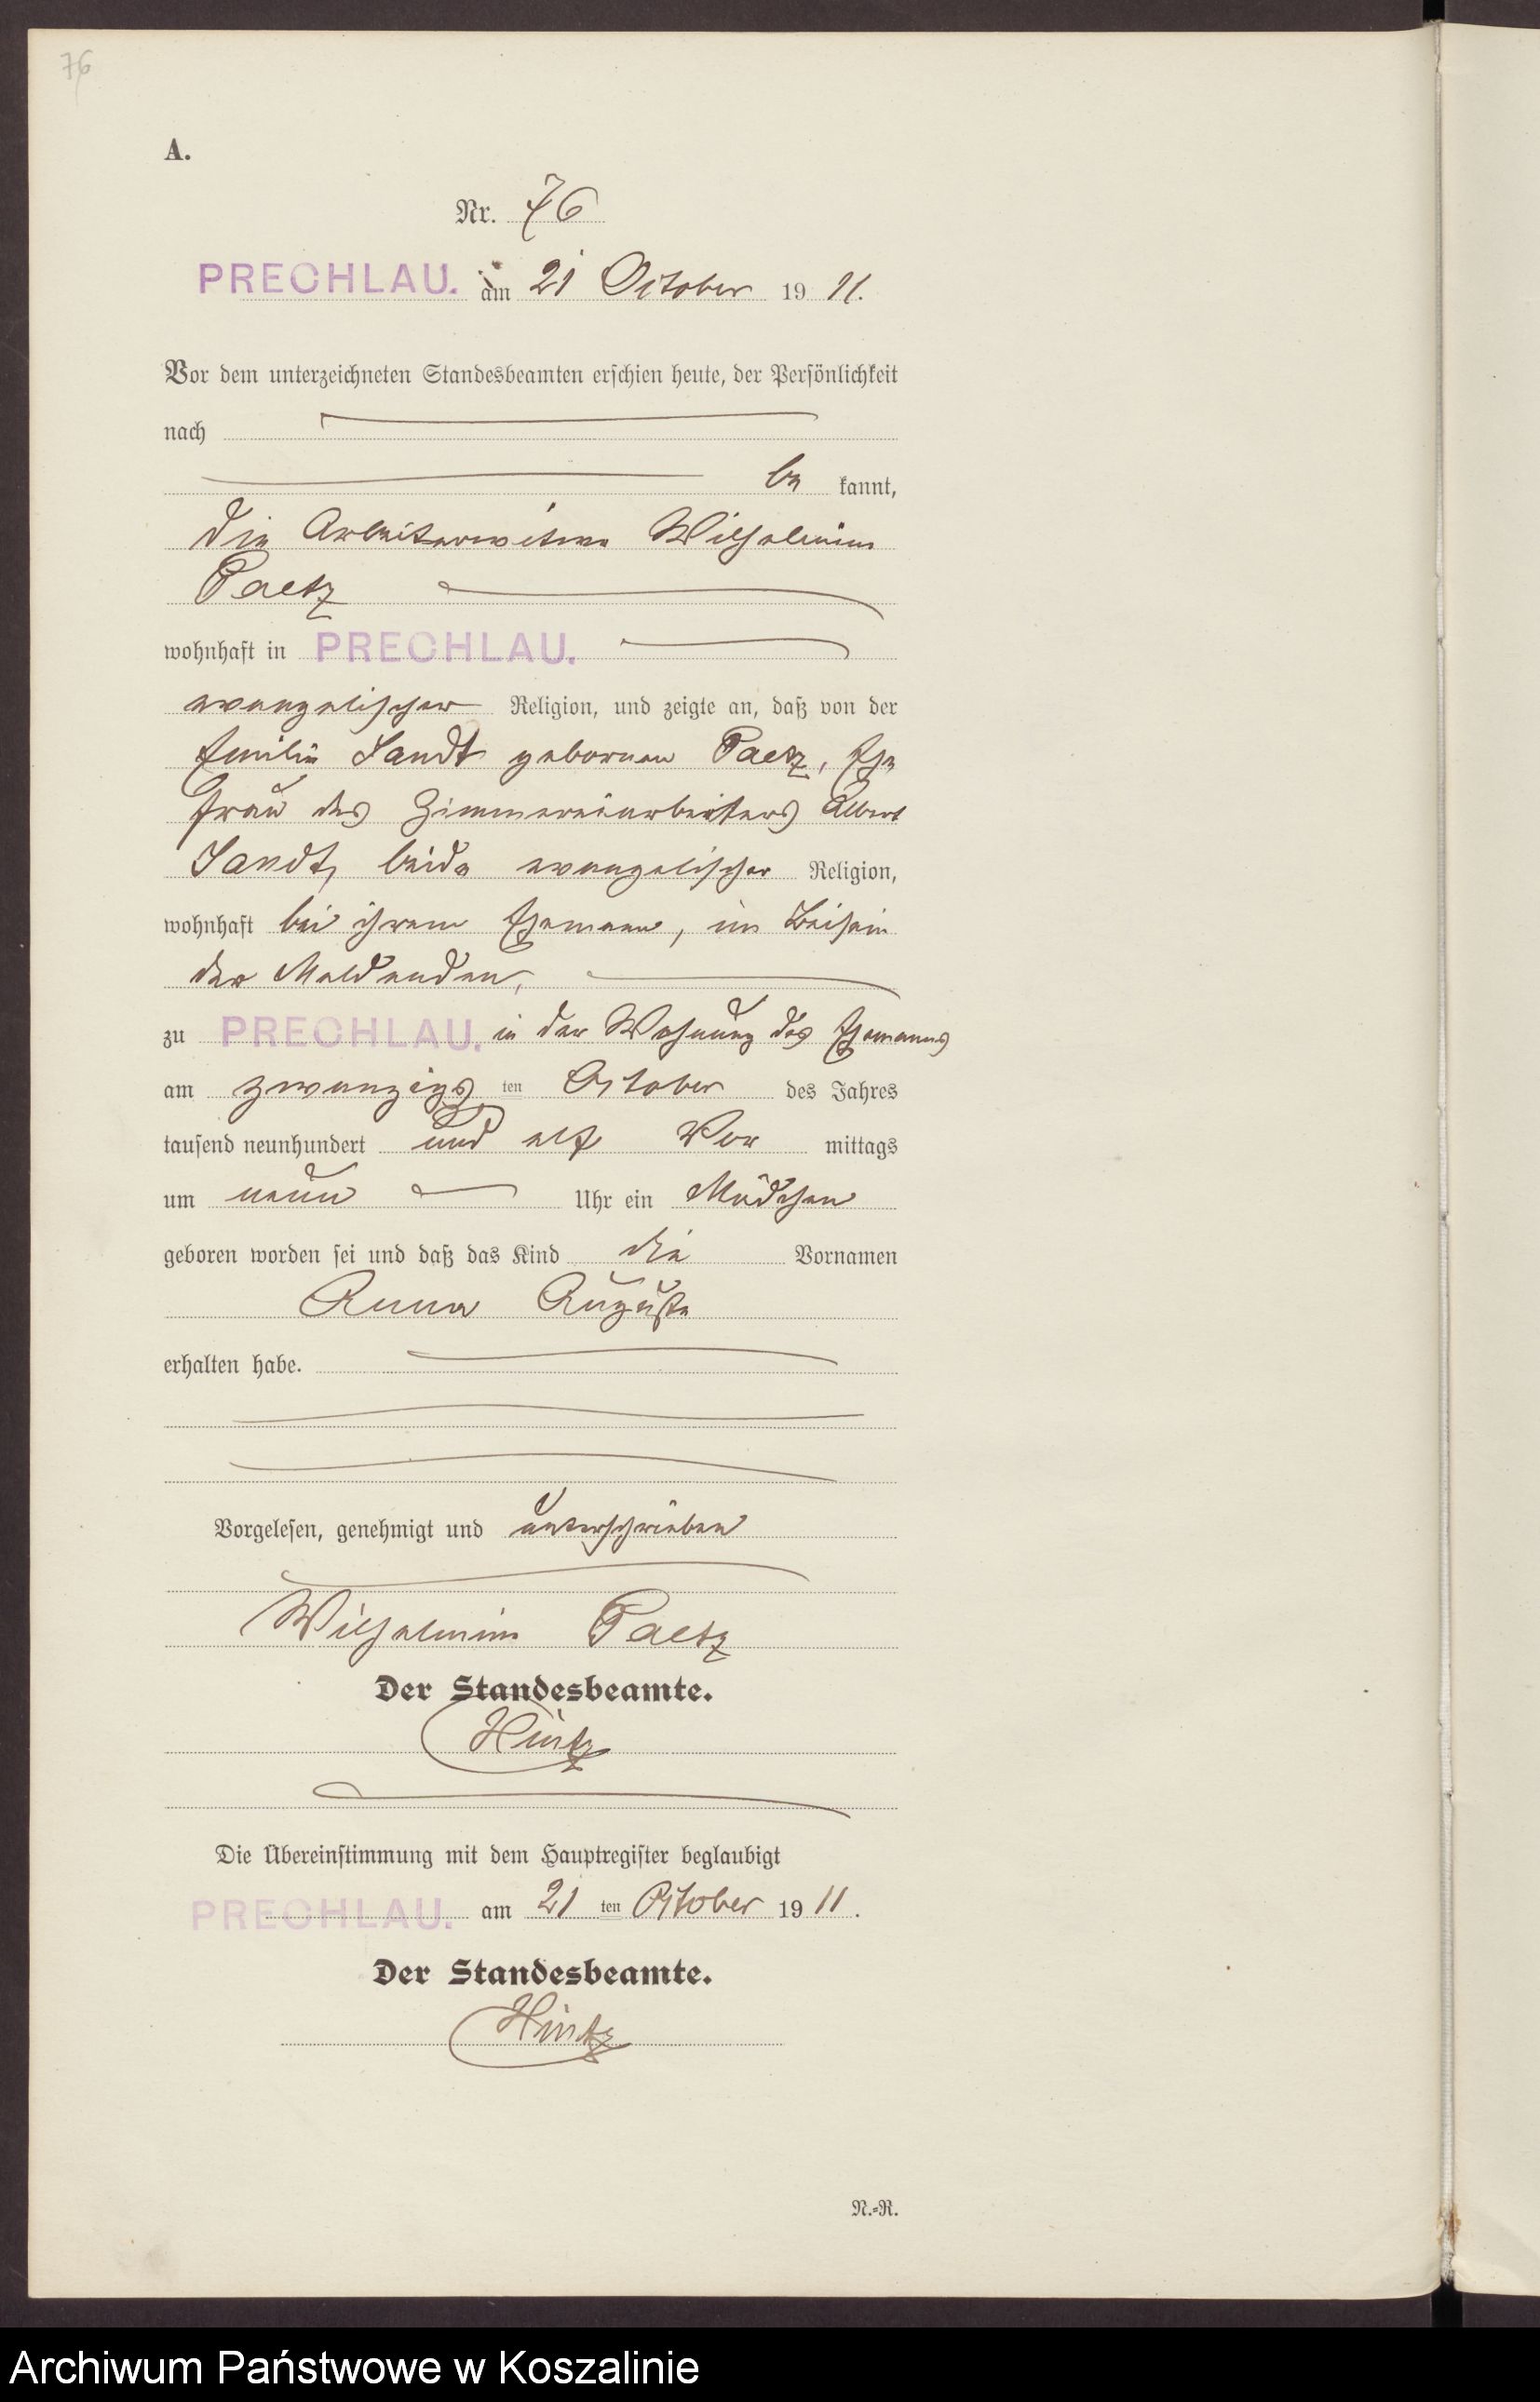 76
A.
Nr. 76
PRECHLAU. am 21 October 19 11.
Vor dem unterzeichneten Standesbeamten erschien heute, der Persönlichkeit
nach
be kannt,
die Arbeiterwitwe Wilhelmine
Paetz
wohnhaft in PRECHLAU.
evangelischer Religion, und zeigte an, daß von der
Emilie Sandt geborenen Paetz, Ehe
frau des Zimmereiarbeiters Albert
Sandt, beide evangelischer Religion,
wohnhaft bei ihrem Ehemann, im Beisein
der Meldenden,
zu PRECHLAU. in der Wohnung des Ehemanns
am zwanzigs ten October des Jahres
tausend neunhundert und elf Vor mittags
um neun Uhr ein Mädchen
geboren worden sei und daß das Kind die Vornamen
Anna Auguste
erhalten habe.
Vorgelesen, genehmigt und unterschrieben
Wilhelmine Paetz
Der Standesbeamte.
Hintz
Die Übereinstimmung mit dem Hauptregister beglaubigt
PRECHLAU. am 21 ten October 19 11.
Der Standesbeamte.
Hintz
N.-R.
Archiwum Państwowe w Koszalinie